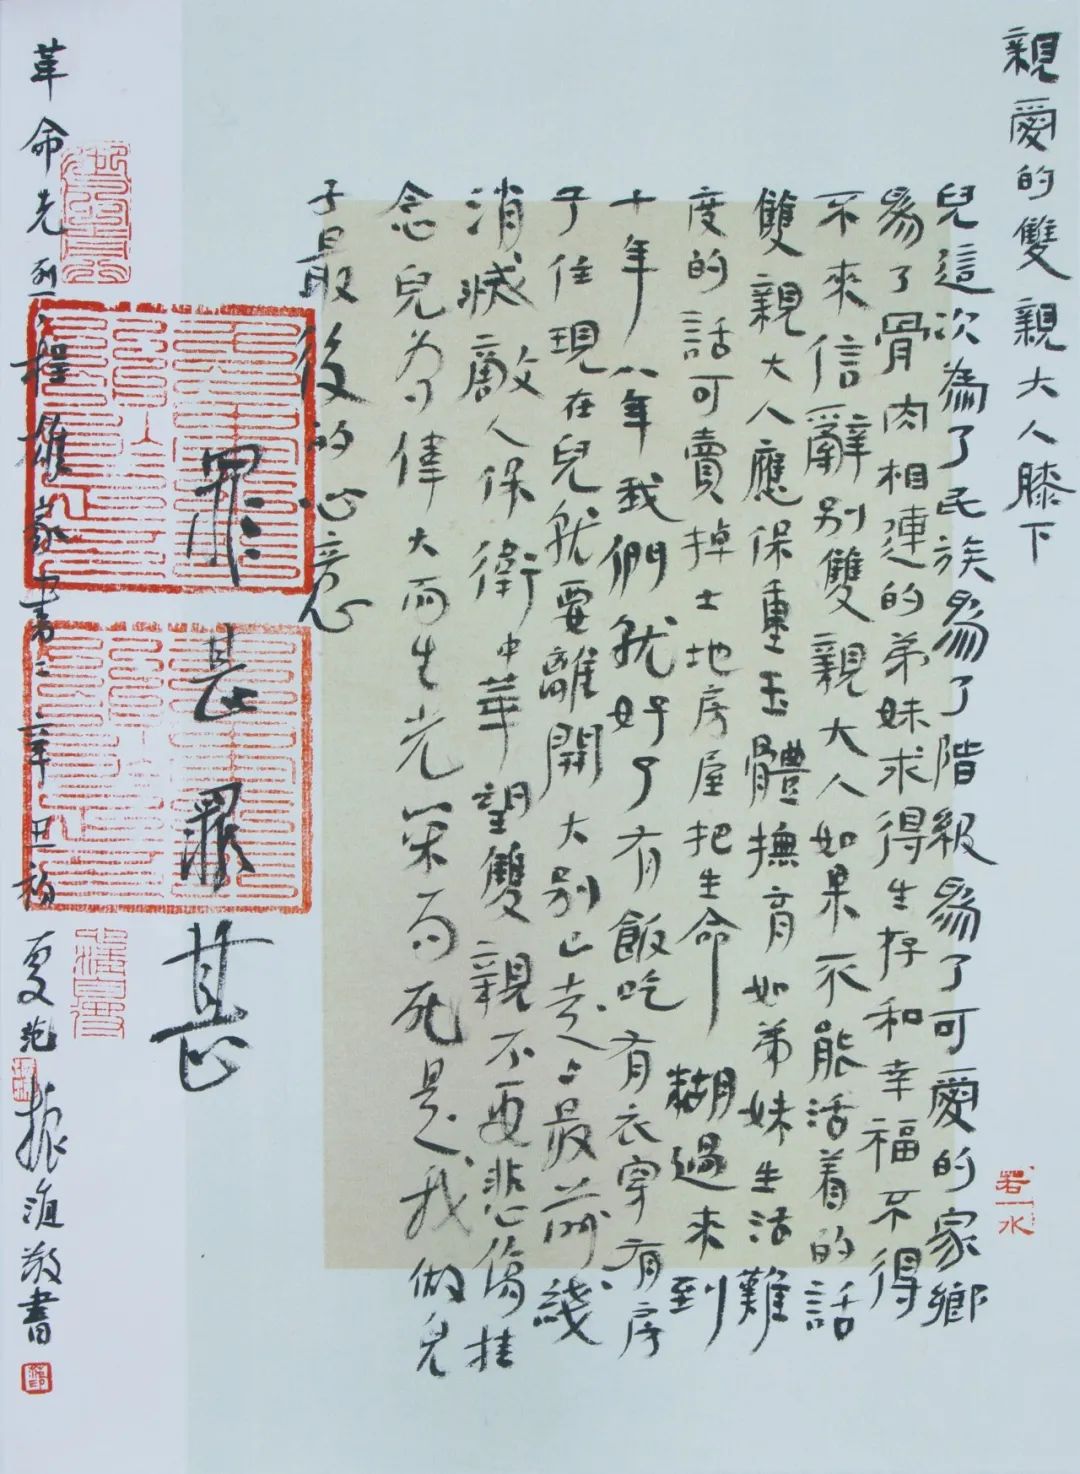 親愛的雙親大人膝下
兒這次為了民族為了階級為了可愛的家鄉
為了骨肉相連的弟妹求得生存和幸福不得
不來信辭別雙親大人如果不能活着的話
雙親大人應保重玉體撫育如弟妹生活難
度的話可賣掉土地房屋把生命糊過來到
十年八年我們就好了有飯吃有衣穿有房
子住現在兒就要離開大别山走上最前綫
消滅敵人保衛中華望雙親不要悲傷挂
念兒為偉大而生光荣而死是我做兒
子最後的心意
罪甚罪甚
革命先烈程雄家書二辛丑初夏苑振海敬書
若水